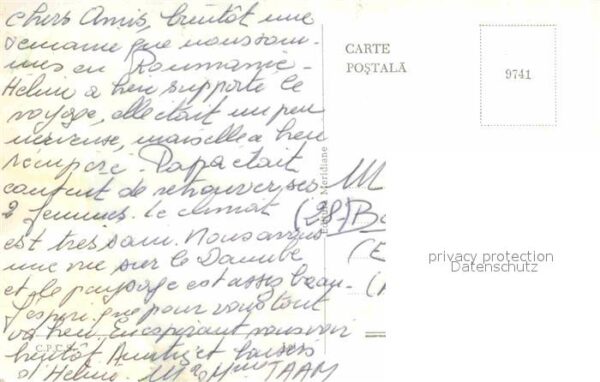 Chers Amis, bientôt une
semaine que nous som-
mes en Roumanie -
a bien supporté le
voyage, elle était un peu
nerveuse, mais elle a bien
récupéré. Papa était
content de retrouver ses
2 femmes. Le climat
est très sain. Nous avons
une vue sur le Danube
et le paysage est assez beau.
J'espère que pour vous tout
va bien. En espérant vous voir
bientôt Amitiés et baisers
d' Mr et Mme TAAM
CARTE
POȘTALĂ
9741
Editura Meridiane
M
(28) B
(E
privacy protection
Datenschutz
C.P.C.S.